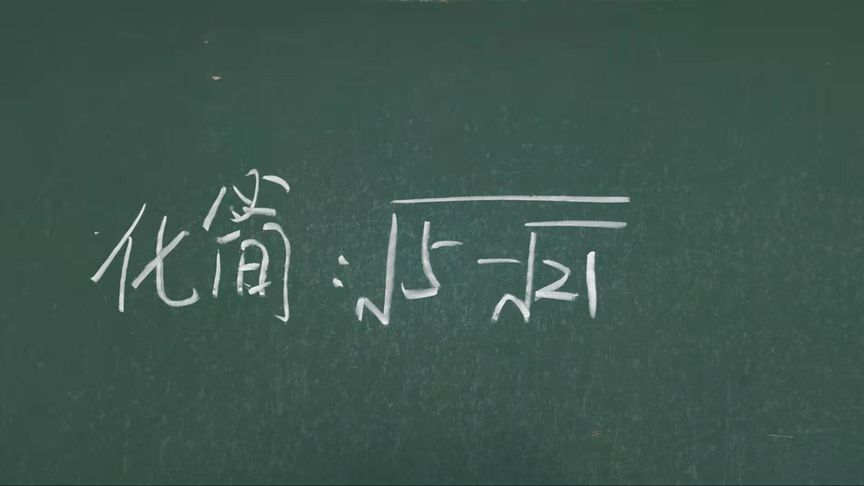 化简:√(5-√21)